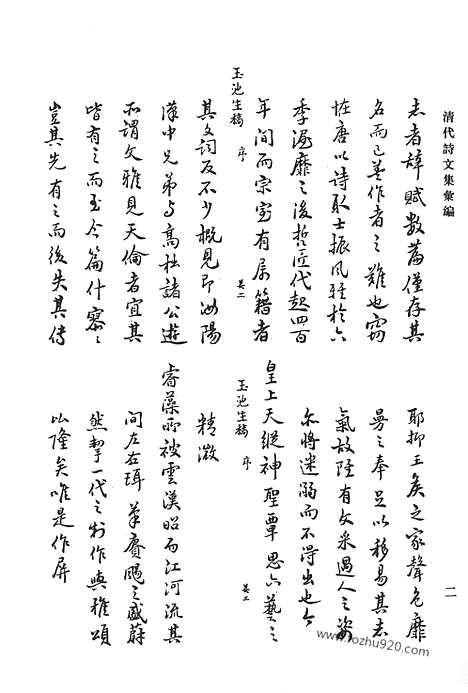 清代詩文集彙編
二
志者辞賦数篇僅存其
名而已盖作者之難也竊
惟唐以詩取士振風雅於六
季淫靡之後哲匠代起四百
年间而宗室有属籍者
玉池生稿 序 其二
其文詞反不少概見即汝陽
漢中兄弟与高杜諸公遊
所谓文雅見天倫者宜其
皆有之而至今篇什寥〻
豈其先有之而後失其傳
耶抑王矦之家聲色靡
曼之奉足以移易其志
氣故陸有文采過人之姿
亦将迷溺而不得出也今
皇上天縱神聖覃思六藝之
玉池生稿 序 其三
精微
睿藻所被雲漢昭而江河流其
间左右珥筆賡颺之盛蔚
然挈一代之制作與雅頌
比隆矣唯是作屏
www.jiuzhu920.com